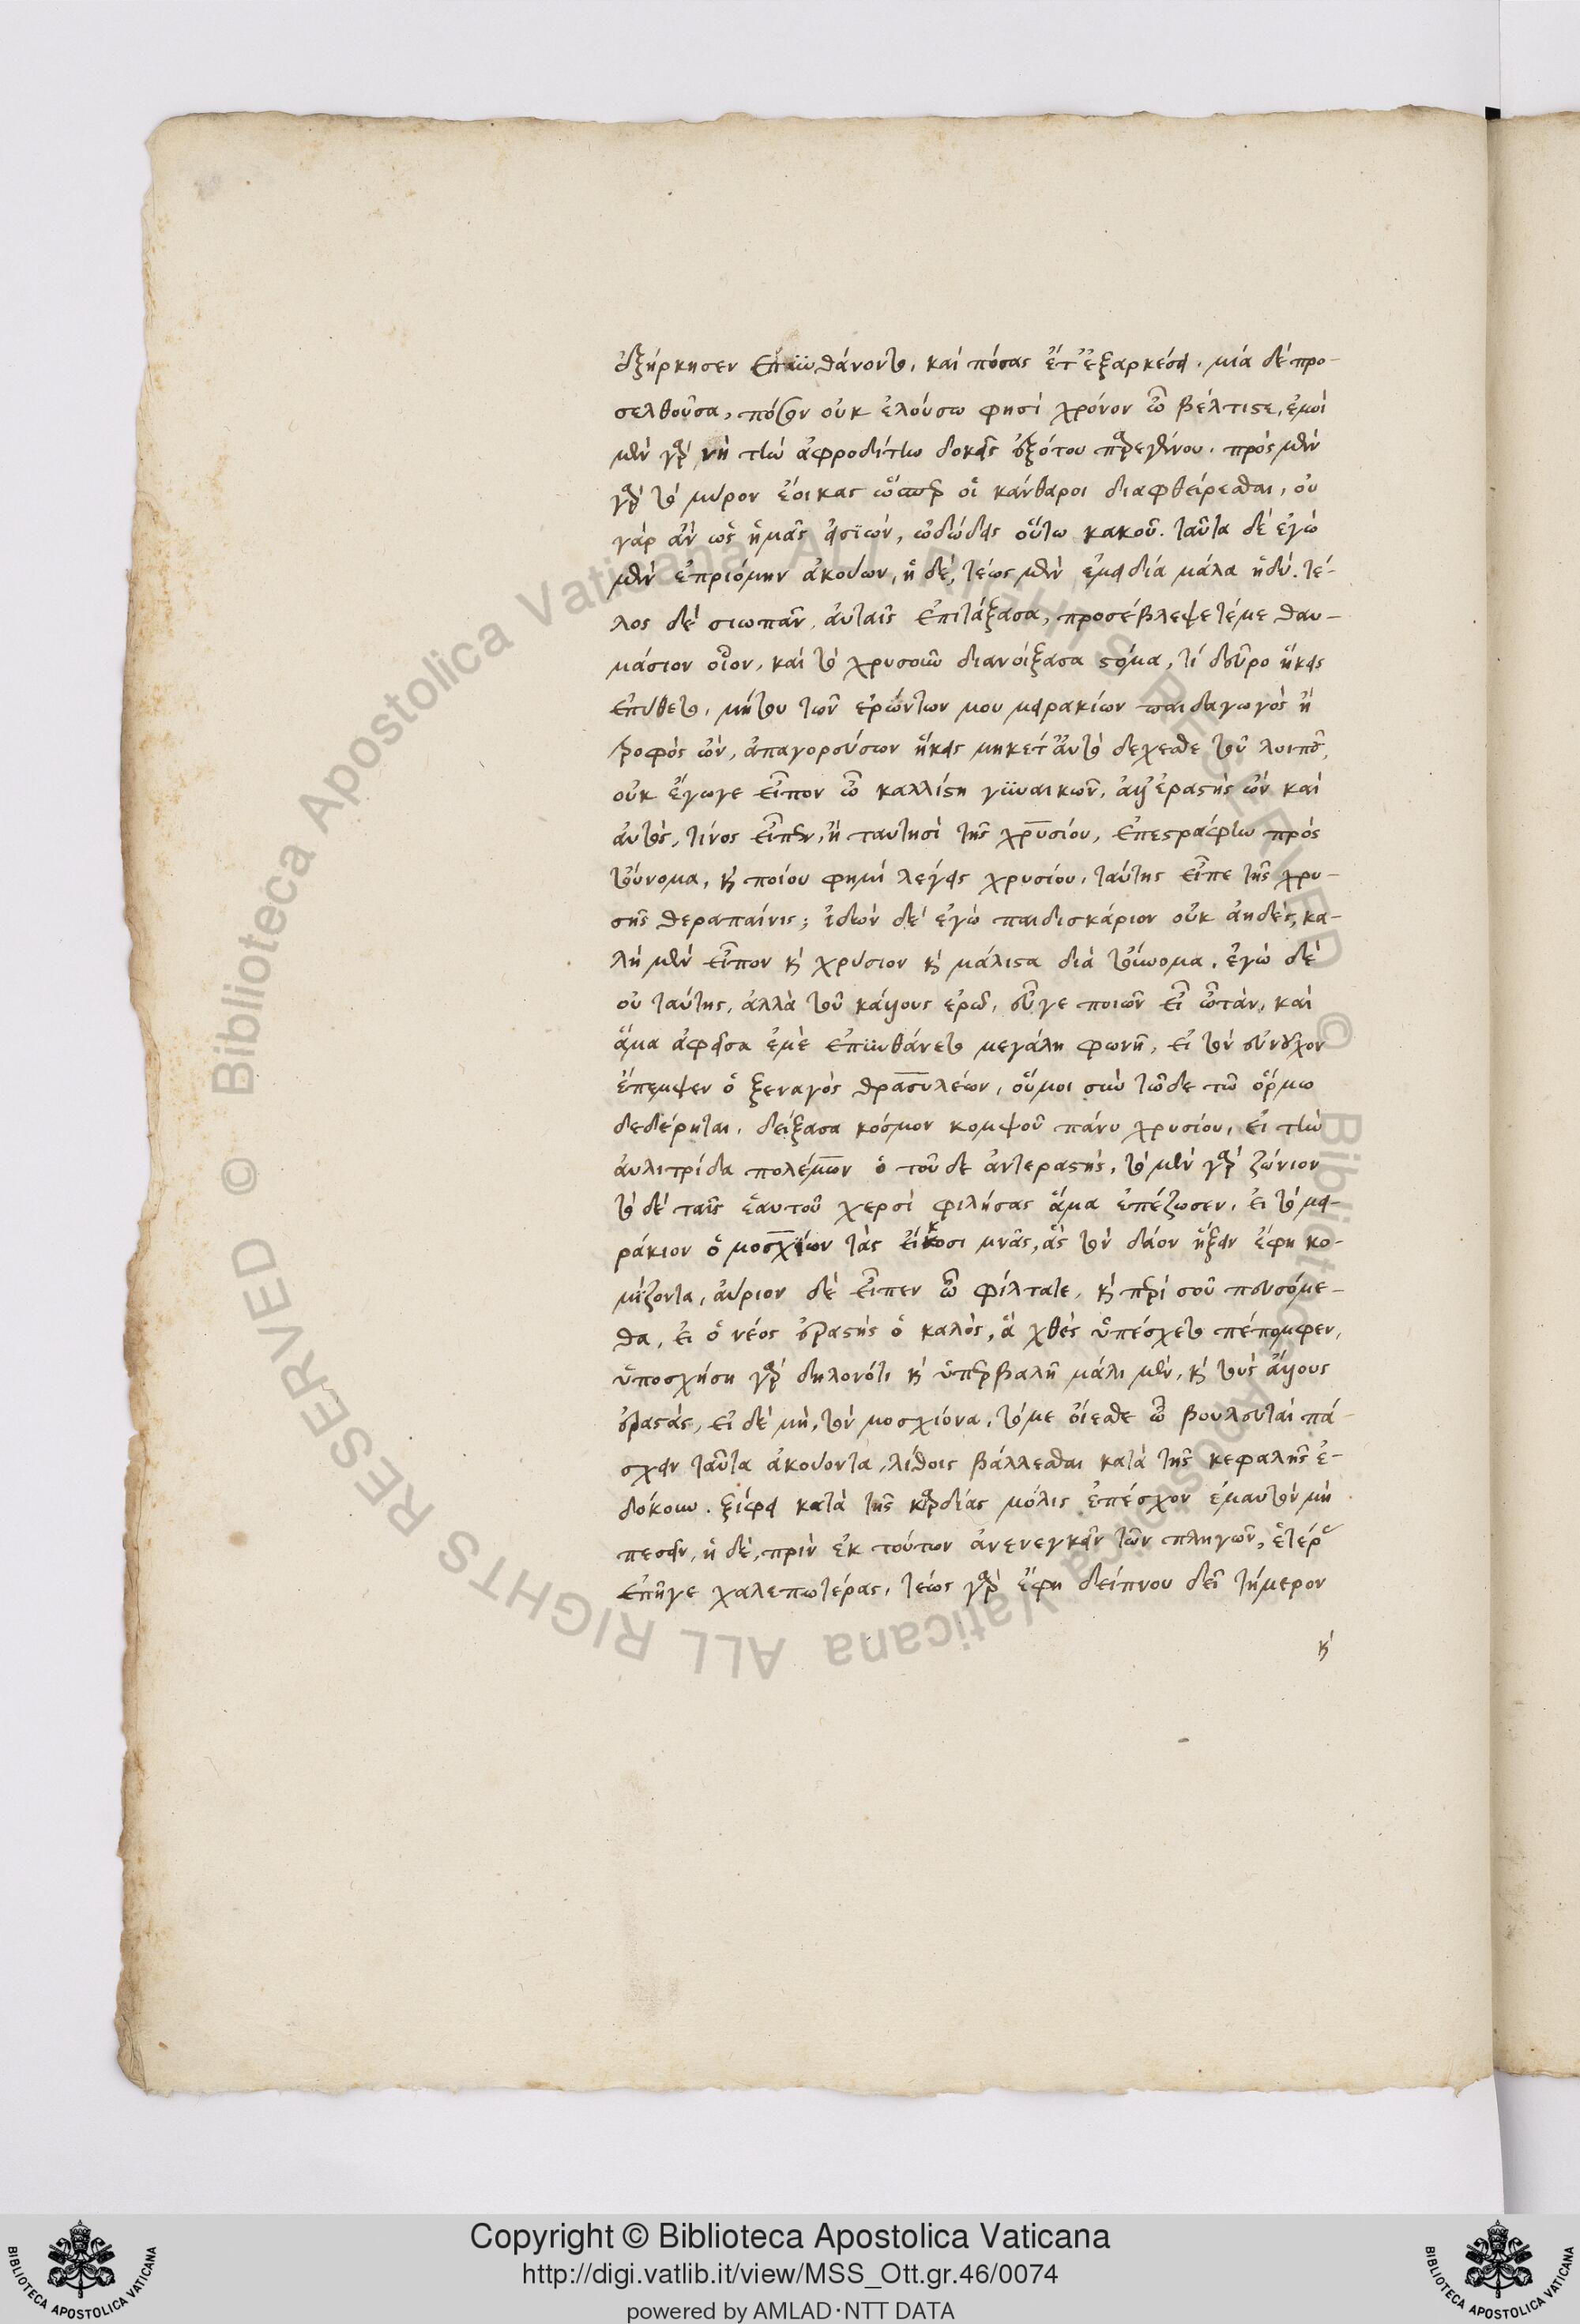 ἐξήρκησεν ἐπυνθάνοντο, καὶ πόσας ἔτ' ἐξαρκέσει. μία δὲ προ-
σελθοῦσα, πόσον οὐκ ἐλούσω φησὶ χρόνον ὦ βέλτιστε, ἐμοὶ
μὲν γὰρ νὴ τὴν ἀφροδίτην δοκεῖς ἐξότου παρεγένου. πρὸς μὲν
γὰρ τὸ μύρον ἔοικας ὥσπερ οἱ κάνθαροι διαφθείρεσθαι, οὐ
γὰρ ἂν ὡς ἡμᾶς εἰσιὼν, ὠδώδεις οὕτω κακοῦ. ταῦτα δὲ ἐγὼ
μὲν ἐπριόμην ἀκούων, ἡ δὲ, τέως μὲν ἐμειδία μάλα ἡδύ. τέ-
λος δὲ σιωπᾶν αὐταῖς ἐπιτάξασα, προσέβλεψε τέ με θαυ-
μάσιον οἷον, καὶ τὸ χρυσοῦν διανοίξασα στόμα, τί δεῦρο ἥκεις
ἐπύθετο, μή του τῶν ἐρώντων μου μειρακίων παιδαγωγὸς ἢ
τροφὸς ὢν, ἀπαγορεύσων ἥκεις μηκέτ' αὐτὸ δέχεσθε τοῦ λοιποῦ,
οὐκ ἔγωγε εἶπον ὦ καλλίστη γυναικῶν, ἀλλ' ἐραστὴς ὢν καὶ
αὐτὸς, τίνος εἶπεν, ἢ ταυτησὶ τῆς χρυσίου, ἐπεστράφην πρὸς
τοὔνομα, καὶ ποίου φημὶ λέγεις χρυσίου, ταύτης εἶπε τῆς χρυ-
σῆς θεραπαίνις; ἰδὼν δὲ ἐγὼ παιδισκάριον οὐκ ἀηδὲς, κα-
λὴ μὲν εἶπον καὶ χρύσιον καὶ μάλιστα διὰ τοὔνομα, ἐγὼ δὲ
οὐ ταύτης, ἀλλὰ τοῦ κάλλους ἐρῶ, εὖγε ποιῶν εἶ ὦτὰν, καὶ
ἅμα ἀφεῖσα ἐμὲ ἐπυνθάνετο μεγάλη φωνῆ, εἰ τὸν εὐνοῦχον
ἔπεμψεν ὁ ξεναγὸς θρασυλέων, οὗ μοι σὺν τῶδε τῶ ὅρμω
δεδέρηται, δείξασα κόσμον κομψοῦ πάνυ χρυσίου, εἰ τὴν
αὐλιτρίδα πολέμων ὁ τοῦδε ἀντεραστὴς, τὸ μὲν γὰρ ζώνιον
τὸ δὲ ταῖς ἑαυτοῦ χερσὶ φιλήσας ἅμα ἐπέζωσεν, εἰ τὸ μει-
ράκιον ὁ μοσχίων τὰς εἴκοσι μνᾶς, ἃς τὸν δάον ἥξειν ἔφη κο-
μίζοντα, αὔριον δὲ εἶπεν ὦ φίλτατε, καὶ περὶ σοῦ πευσόμε-
θα, εἰ ὁ νέος ἐραστὴς ὁ καλὸς, ἃ χθὲς ὑπέσχετο πέπομφεν,
ὑποσχήση γὰρ δηλονότι καὶ ὑπερβαλῆ μάλι μὲν, καὶ τοὺς ἄλλους
ἐραστὰς, εἰ δὲ μὴ, τὸν μοσχίονα, τό με οἴεσθε ὦ βουλευταὶ πά-
σχειν ταῦτα ἀκούοντα, λίθοις βάλλεσθαι κατὰ τῆς κεφαλῆς ἐ-
δόκουν. ξίφει κατὰ τῆς καρδίας μόλις ἐπέσχον ἐμαυτὸν μὴ
πεσεῖν, ἡ δὲ, πρὶν ἐκ τούτων ἀνενεγκεῖν τῶν πληγῶν, ἑτέρας
ἐπῆγε χαλεπωτέρας, τέως γὰρ ἔφη δείπνου δεῖ τήμερον
καὶ
Copyright © Biblioteca Apostolica Vaticana
http://digi.vatlib.it/view/MSS_Ott.gr.46/0074
powered by AMLAD·NTT DATA
© Biblioteca Apostolica Vaticana ALL RIGHTS RESERVED © Biblioteca Apostolica Vaticana ALL RIGHTS RESERVED
BIBLIOTECA APOSTOLICA VATICANA
BIBLIOTECA APOSTOLICA VATICANA